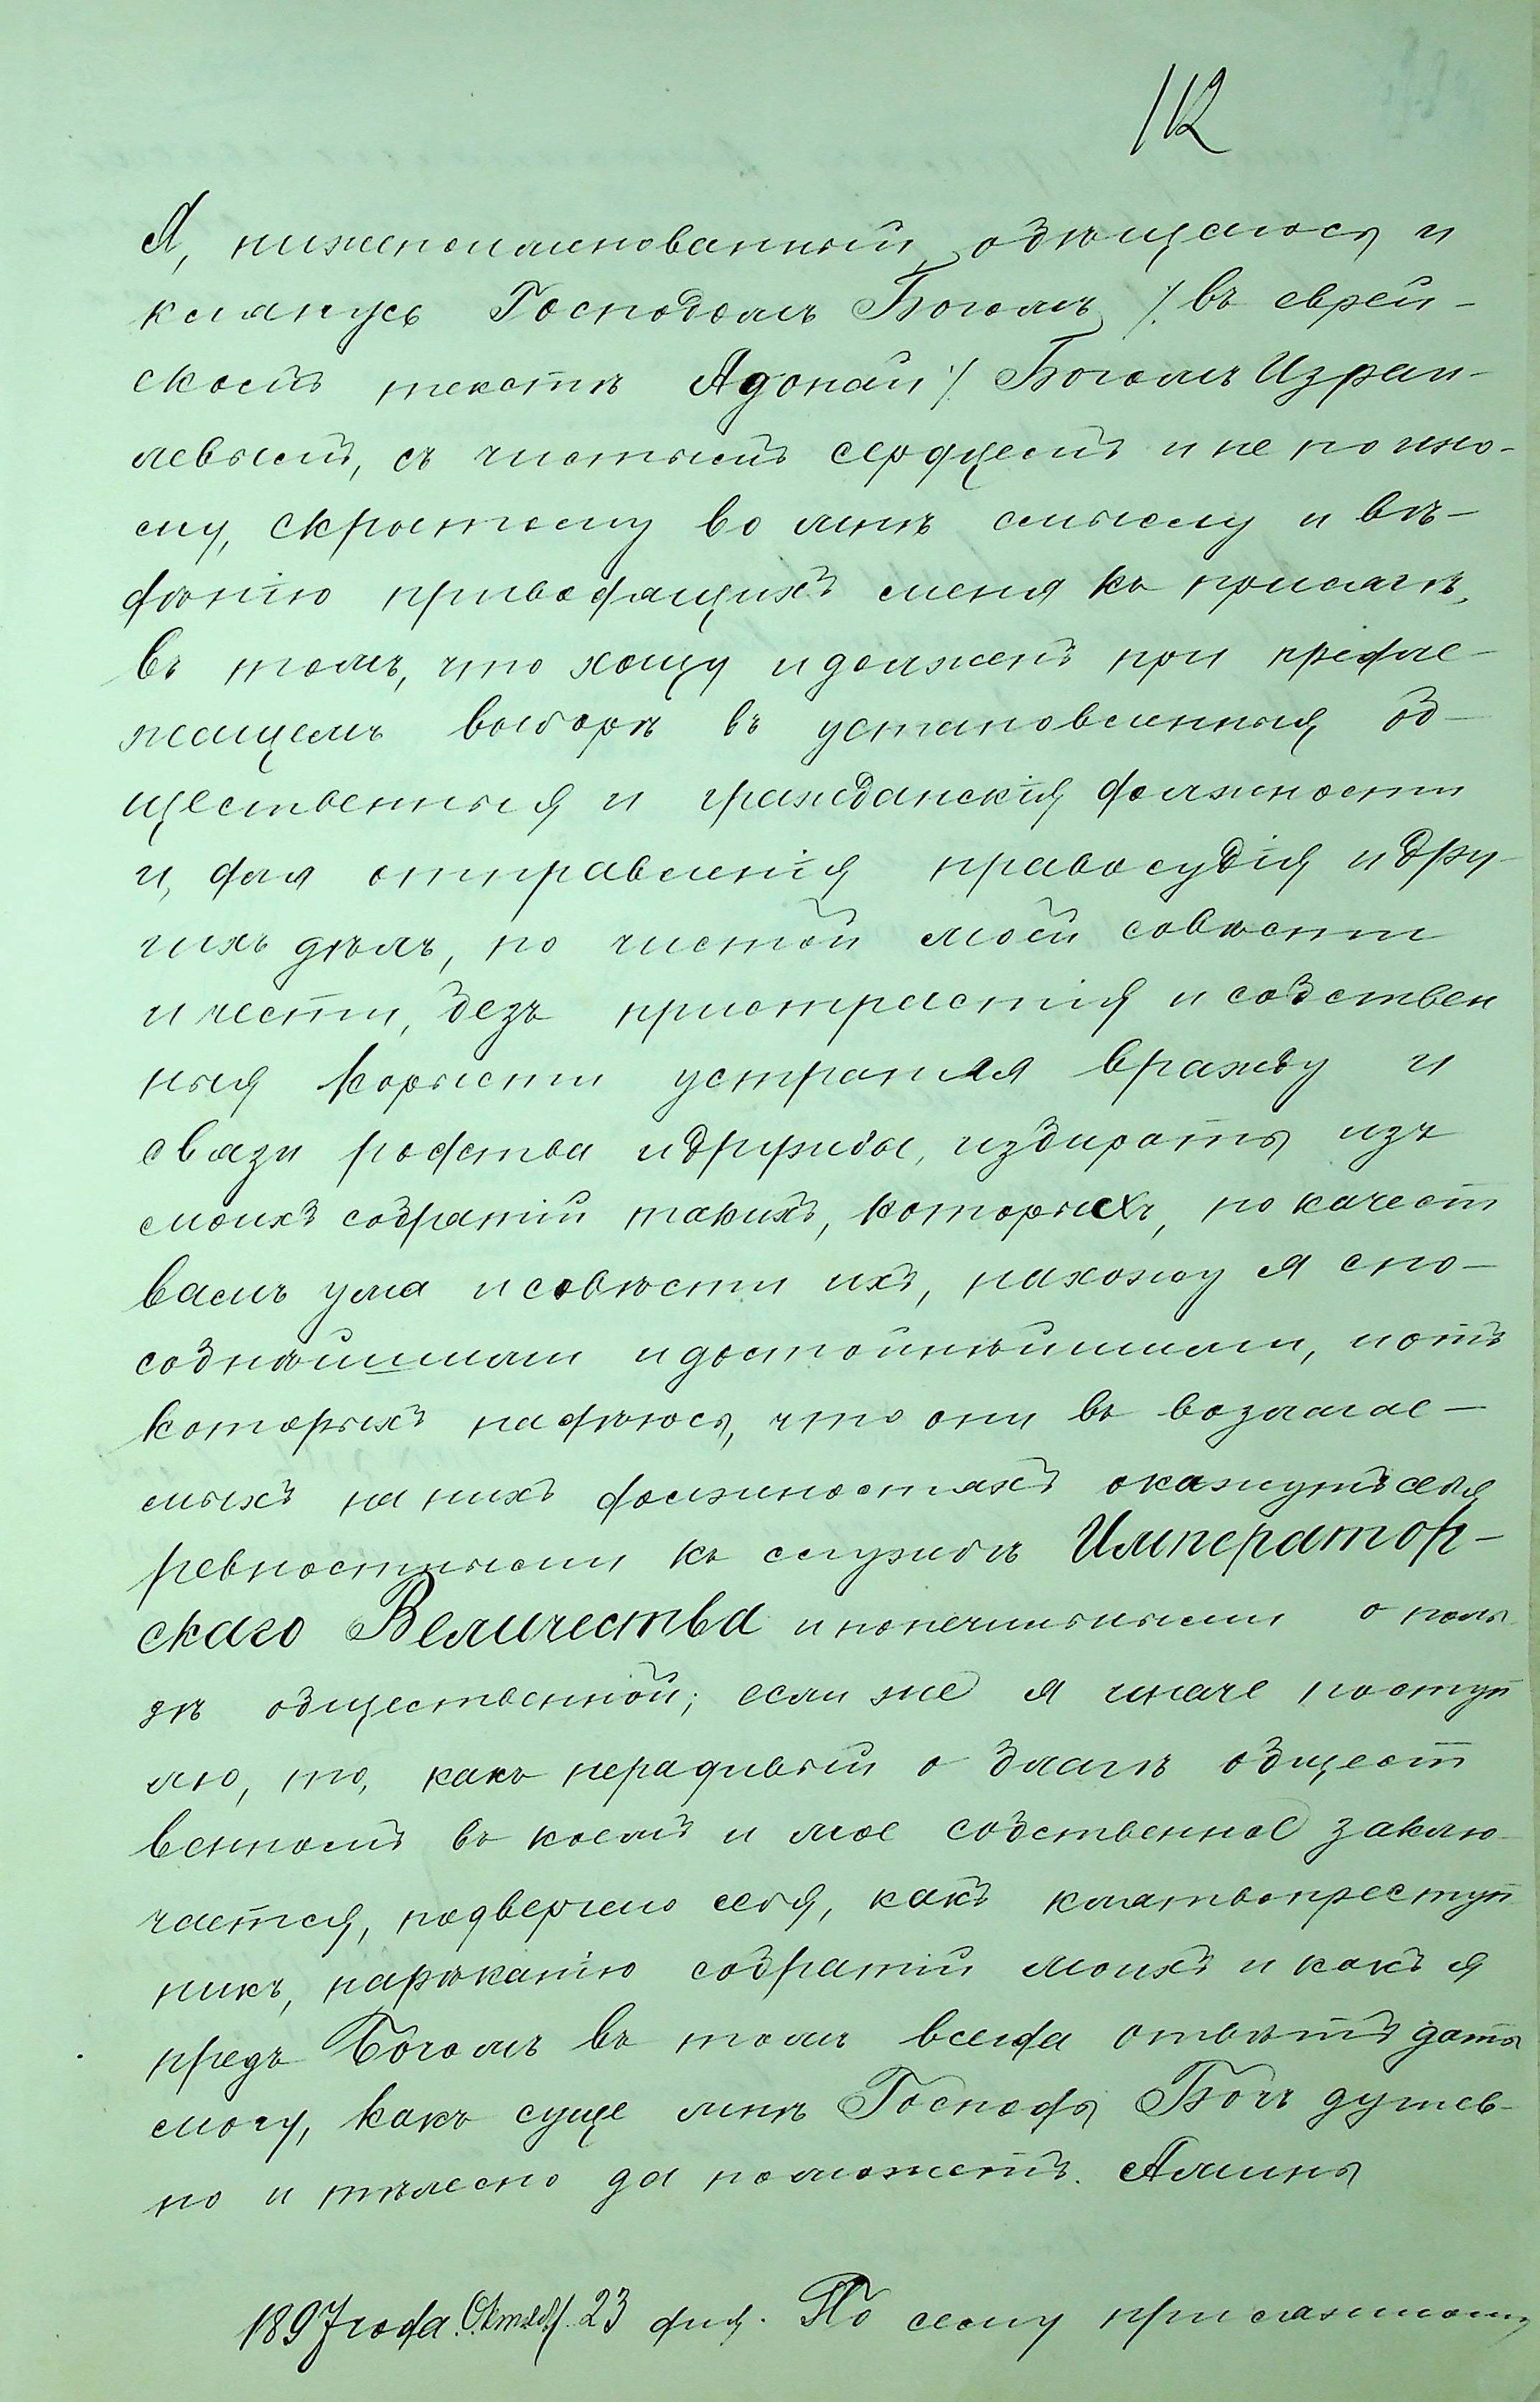 112
Я, нижепоименованный, обѣщаюсь и
клянусь Господомъ Богомъ /: въ еврей-
скомъ текстѣ Адонай :/ Богомъ Израи-
левымъ, съ чистымъ сердцемъ и не по ино-
му, скрытому во мнѣ смыслу и вѣ-
дѣнію приводящихъ меня къ присягѣ,
въ томъ, что хощу и долженъ при предле-
жащемъ выборѣ въ установленныя об-
щественныя и гражданскія должности
и, для отправленія правосудія и дру-
гихъ дѣлъ, по чистой моей совѣсти
и чести, безъ пристрастія и собствен
ныя корысти устраняя вражду и
связи родства и дружбы, избирать изъ
моихъ собратій такихъ, которыхъ, по качест
вамъ ума и совѣсти ихъ, нахожу я спо-
собнѣйшими и достойнѣйшими, и отъ
которыхъ надѣюсь, что они въ возлагае-
мыхъ на нихъ должностяхъ окажутъ себя
ревностными къ службѣ Император-
скаго Величества и попечительными о поль
зѣ общественной; если же я иначе поступ
лю, то, какъ нерадивый о благѣ общест
венномъ въ коемъ и мое собственное заклю-
чается, подвергаю себя, какъ клятвопреступ
никъ, нареканію собратій моихъ и какъ я
предъ Богомъ въ томъ всегда отвѣтъ дать
могу, какъ суще мнѣ Господь Богъ душев-
но и тѣлесно да поможетъ. Аминь
1897 года Октяб. 23 дня. По сему присяжному